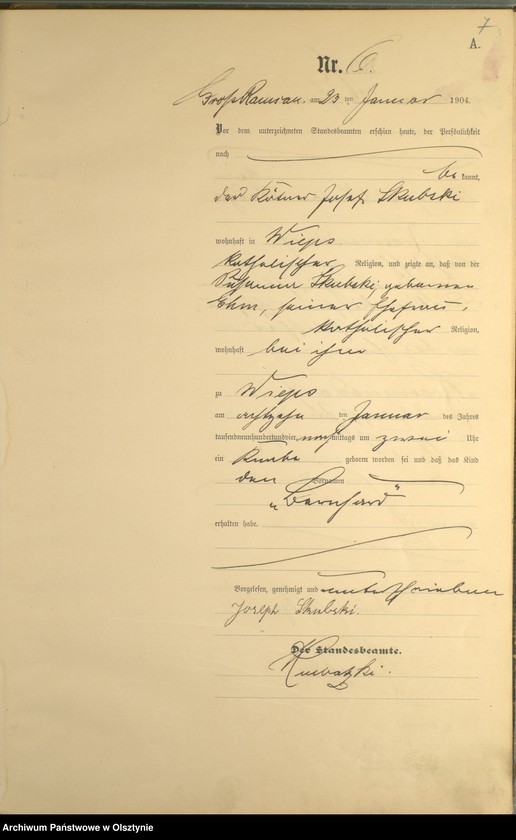 7
A.
Nr. 6.
Groß Ramsau, am 23 ten Januar 1904.
Vor dem unterzeichneten Standesbeamten erschien heute, der Persönlichkeit
nach
be kannt,
der Kätner Josef Skubski
wohnhaft in Wieps
katholischer Religion, und zeigte an, daß von der
Skubski, geborenen
seiner Ehefrau,
katholischer Religion,
wohnhaft bei ihm
zu Wieps
am achtzehn ten Januar des Jahres
tausendneunhundertundvier, nachmittags um zwei Uhr
ein Knabe geboren worden sei und daß das Kind
den Vornamen
„Bernhard"
erhalten habe.
Vorgelesen, genehmigt und unterschrieben
Joseph Skubski.
Der Standesbeamte.
Archiwum Państwowe w Olsztynie